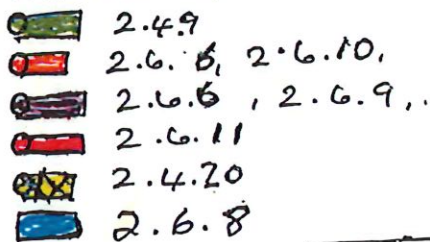 2.4.9
2.6.5, 2.6.10.
2.6.6, 2.6.9,.
2.6.11
2.4.20
2.6.8